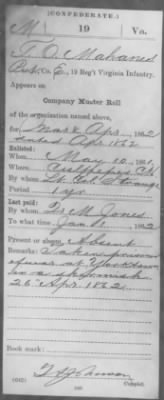 (CONFEDERATE.)
M 19 Va.
T. O. Mahanes
Pvt., Co. E, 19 Reg't Virginia Infantry.
Appears on
Company Muster Roll
of the organization named above,
for Mar & Apr, 1862
dated Apr 1862
Enlisted:
When May 10, 1861.
Where Culpeper C.H.
By whom Lt. Col. Strange
Period 1 yr
Last paid:
By whom T. M. Jones
To what time Jan 1, 1862
Present or absent Absent
Remarks: Taken prisoner
of war at Yorktown
in a skirmish
26 Apr 1862
Book mark:
(642) Copyist.